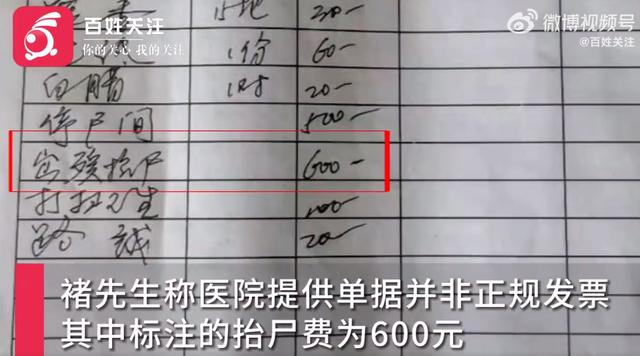 百姓关注
你的关心 我的关注
微博视频号
@百姓关注
20-
1份 60-
白腊 1对 20-
停尸间 500-
入殓抬尸 600-
打扫卫生 100-
20-
褚先生称医院提供单据并非正规发票
其中标注的抬尸费为600元